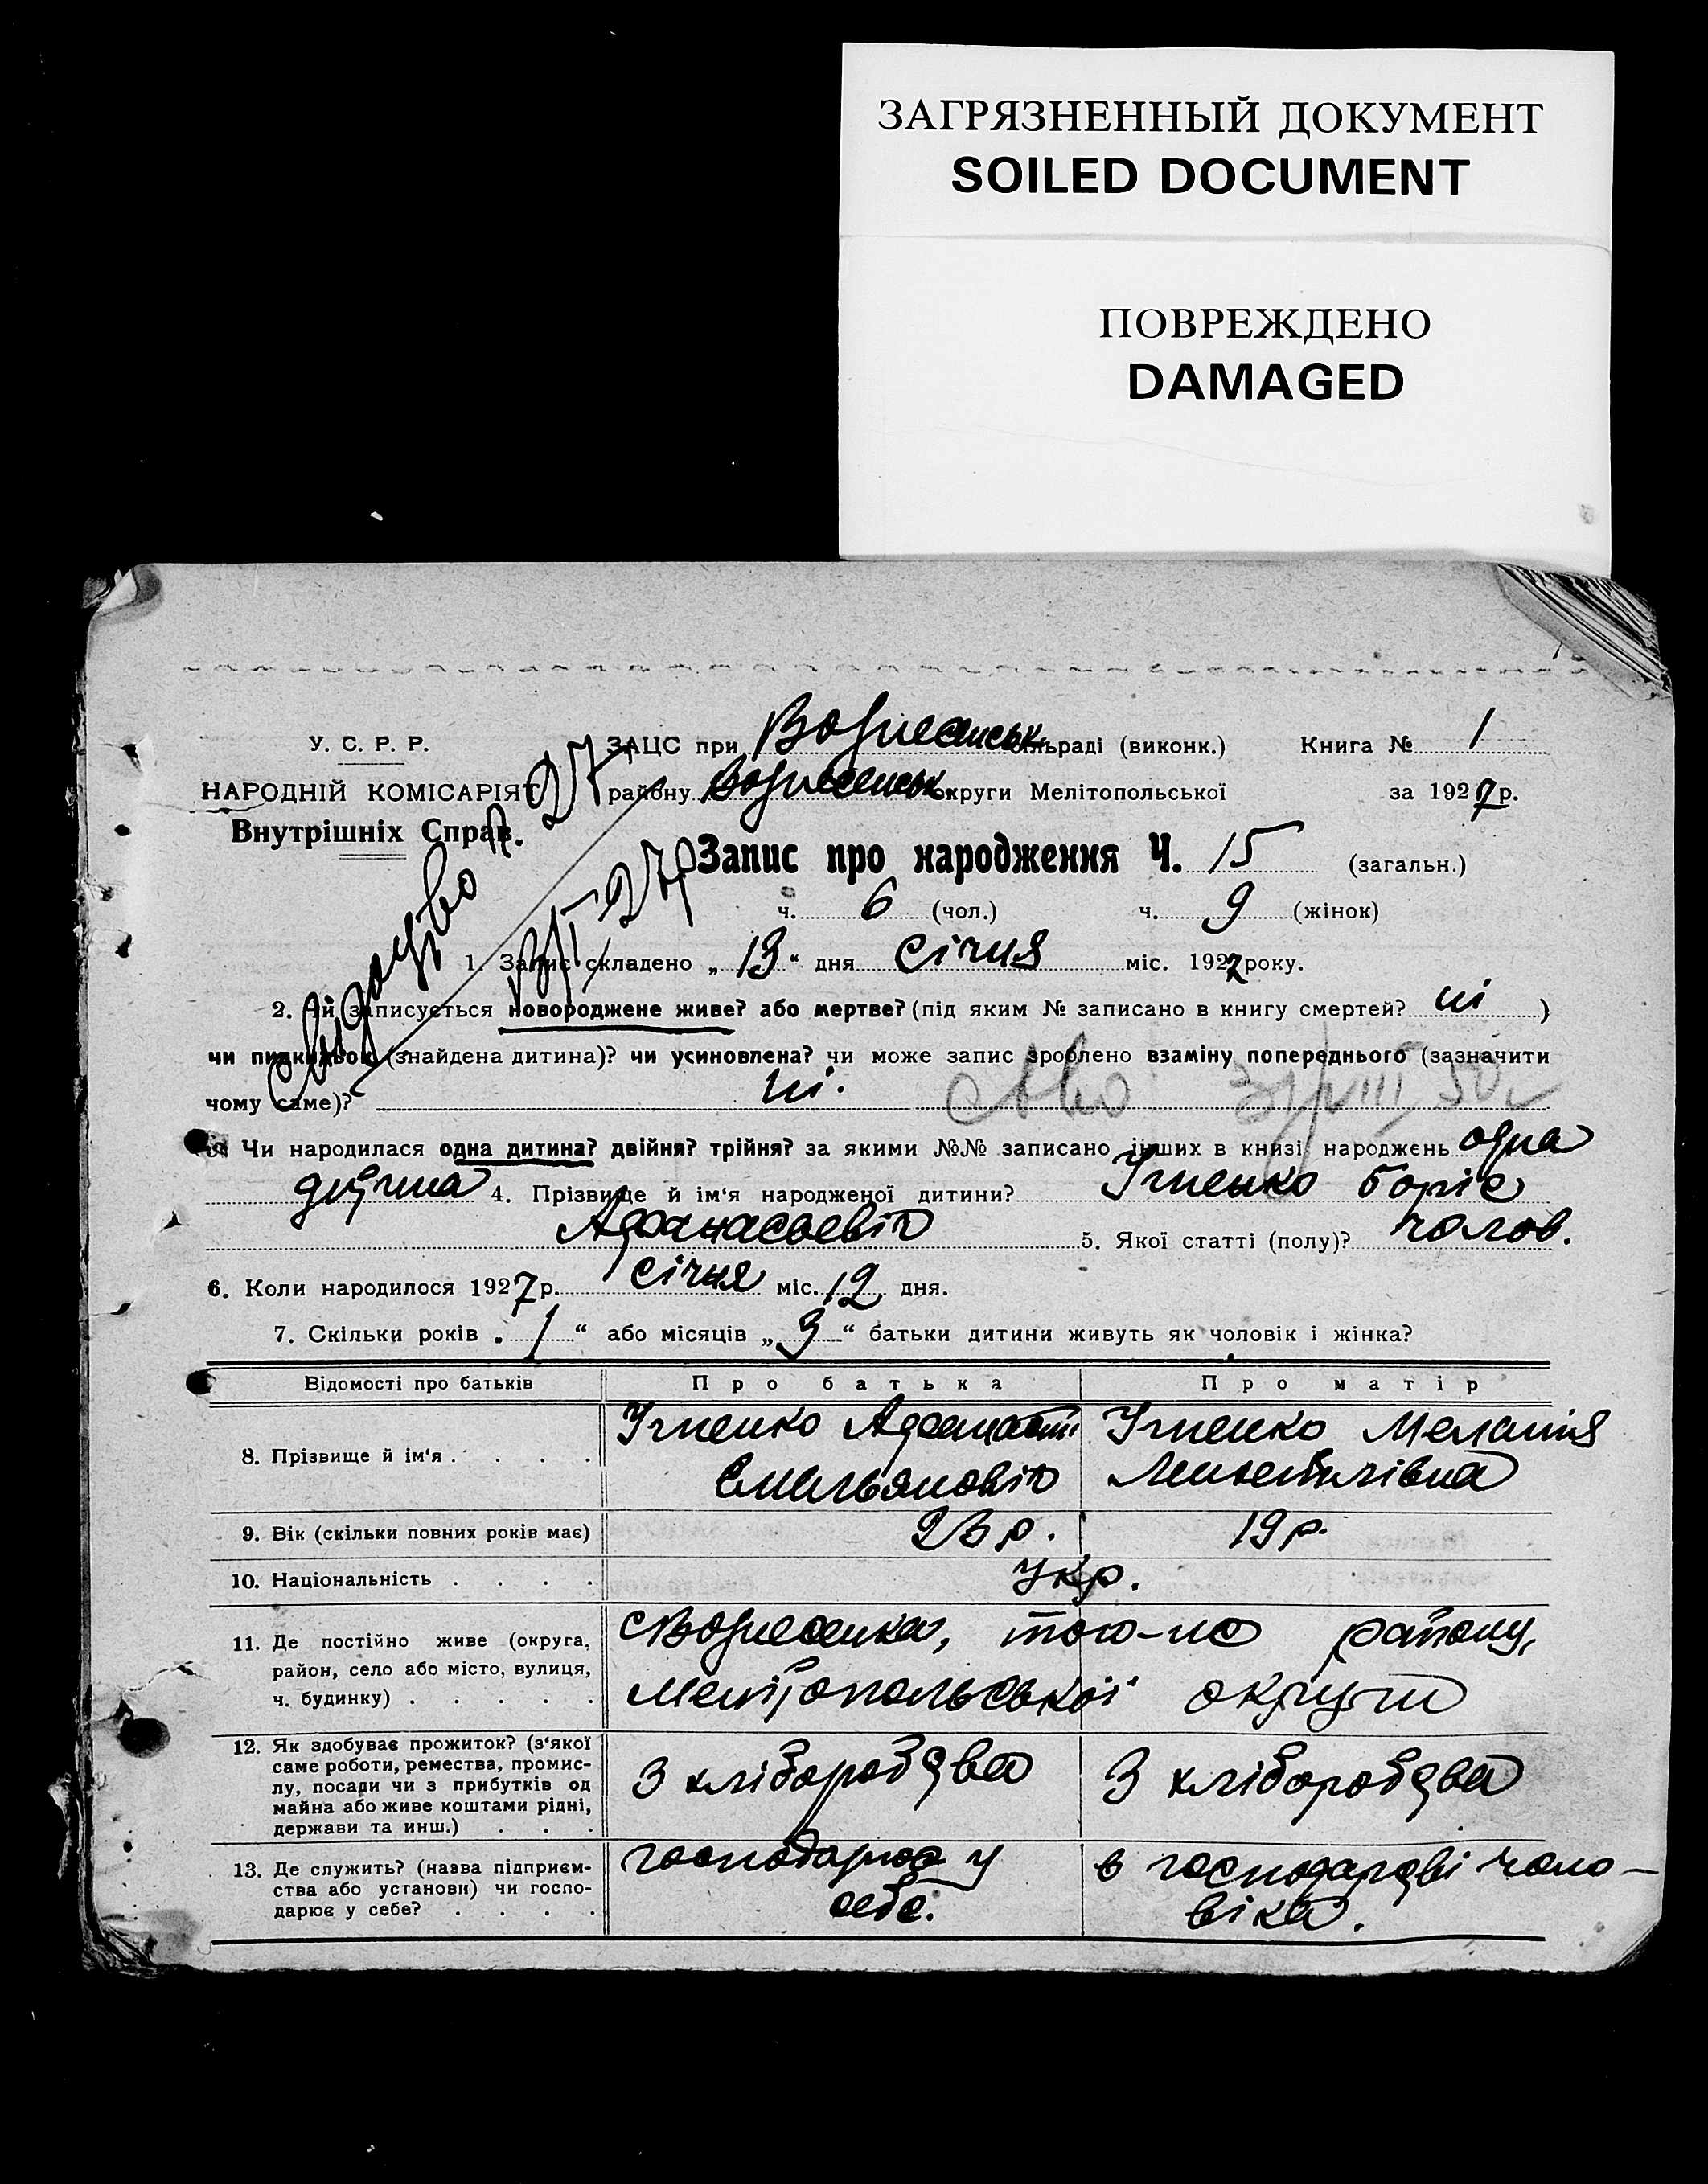 ЗАГРЯЗНЕННЫЙ ДОКУМЕНТ
SOILED DOCUMENT
ПОВРЕЖДЕНО
DAMAGED
У. С. Р. Р.
ЗАЦС при Вознесенськ. сільраді (виконк.) Книга № 1
НАРОДНІЙ КОМІСАРІЯТ
району Вознесенськ. округи Мелітопольської за 1927 р.
Внутрішніх Справ.
Запис про народження Ч. 15 (загальн.)
ч. 6 (чол.) ч. 9 (жінок)
1. Запис складено „13“ дня січня міс. 1927 року.
2. Чи записується новороджене живе? або мертве? (під яким № записано в книгу смертей? ні )
чи підкидьок (знайдена дитина)? чи усиновлена? чи може запис зроблено взаміну попереднього (зазначити
чому саме)? ні.
3. Чи народилася одна дитина? двійня? трійня? за якими №№ записано інших в книзі народжень одна
дитина 4. Прізвище й ім‘я народженої дитини? Ігненко Боріс
Афанасьевіч 5. Якої статті (полу)? чолов.
6. Коли народилося 1927 р. січня міс. 12 дня.
7. Скільки років „1“ або місяців „3“ батьки дитини живуть як чоловік і жінка?
Відомості про батьків Про батька Про матір
8. Прізвище й ім‘я . . . . Ігненко Афанасій Ігненко Меланія
Емельяновіч
9. Вік (скільки повних років має) 23 р. 19 р.
10. Національність . . . . Укр.
11. Де постійно живе (округа, район, село або місто, вулиця, ч. будинку) . . . . .
с Вознесенка, того-ж району,
Мелітопольської округи
12. Як здобуває прожиток? (з‘якої саме роботи, ремества, промислу, посади чи з прибутків од майна або живе коштами рідні, держави та инш.) . . .
З хліборобства З хліборобства
13. Де служить? (назва підприємства або установи) чи господарює у себе? . . . .
господарює у в господарстві чоло-
себе. віка.
Свідоцтво